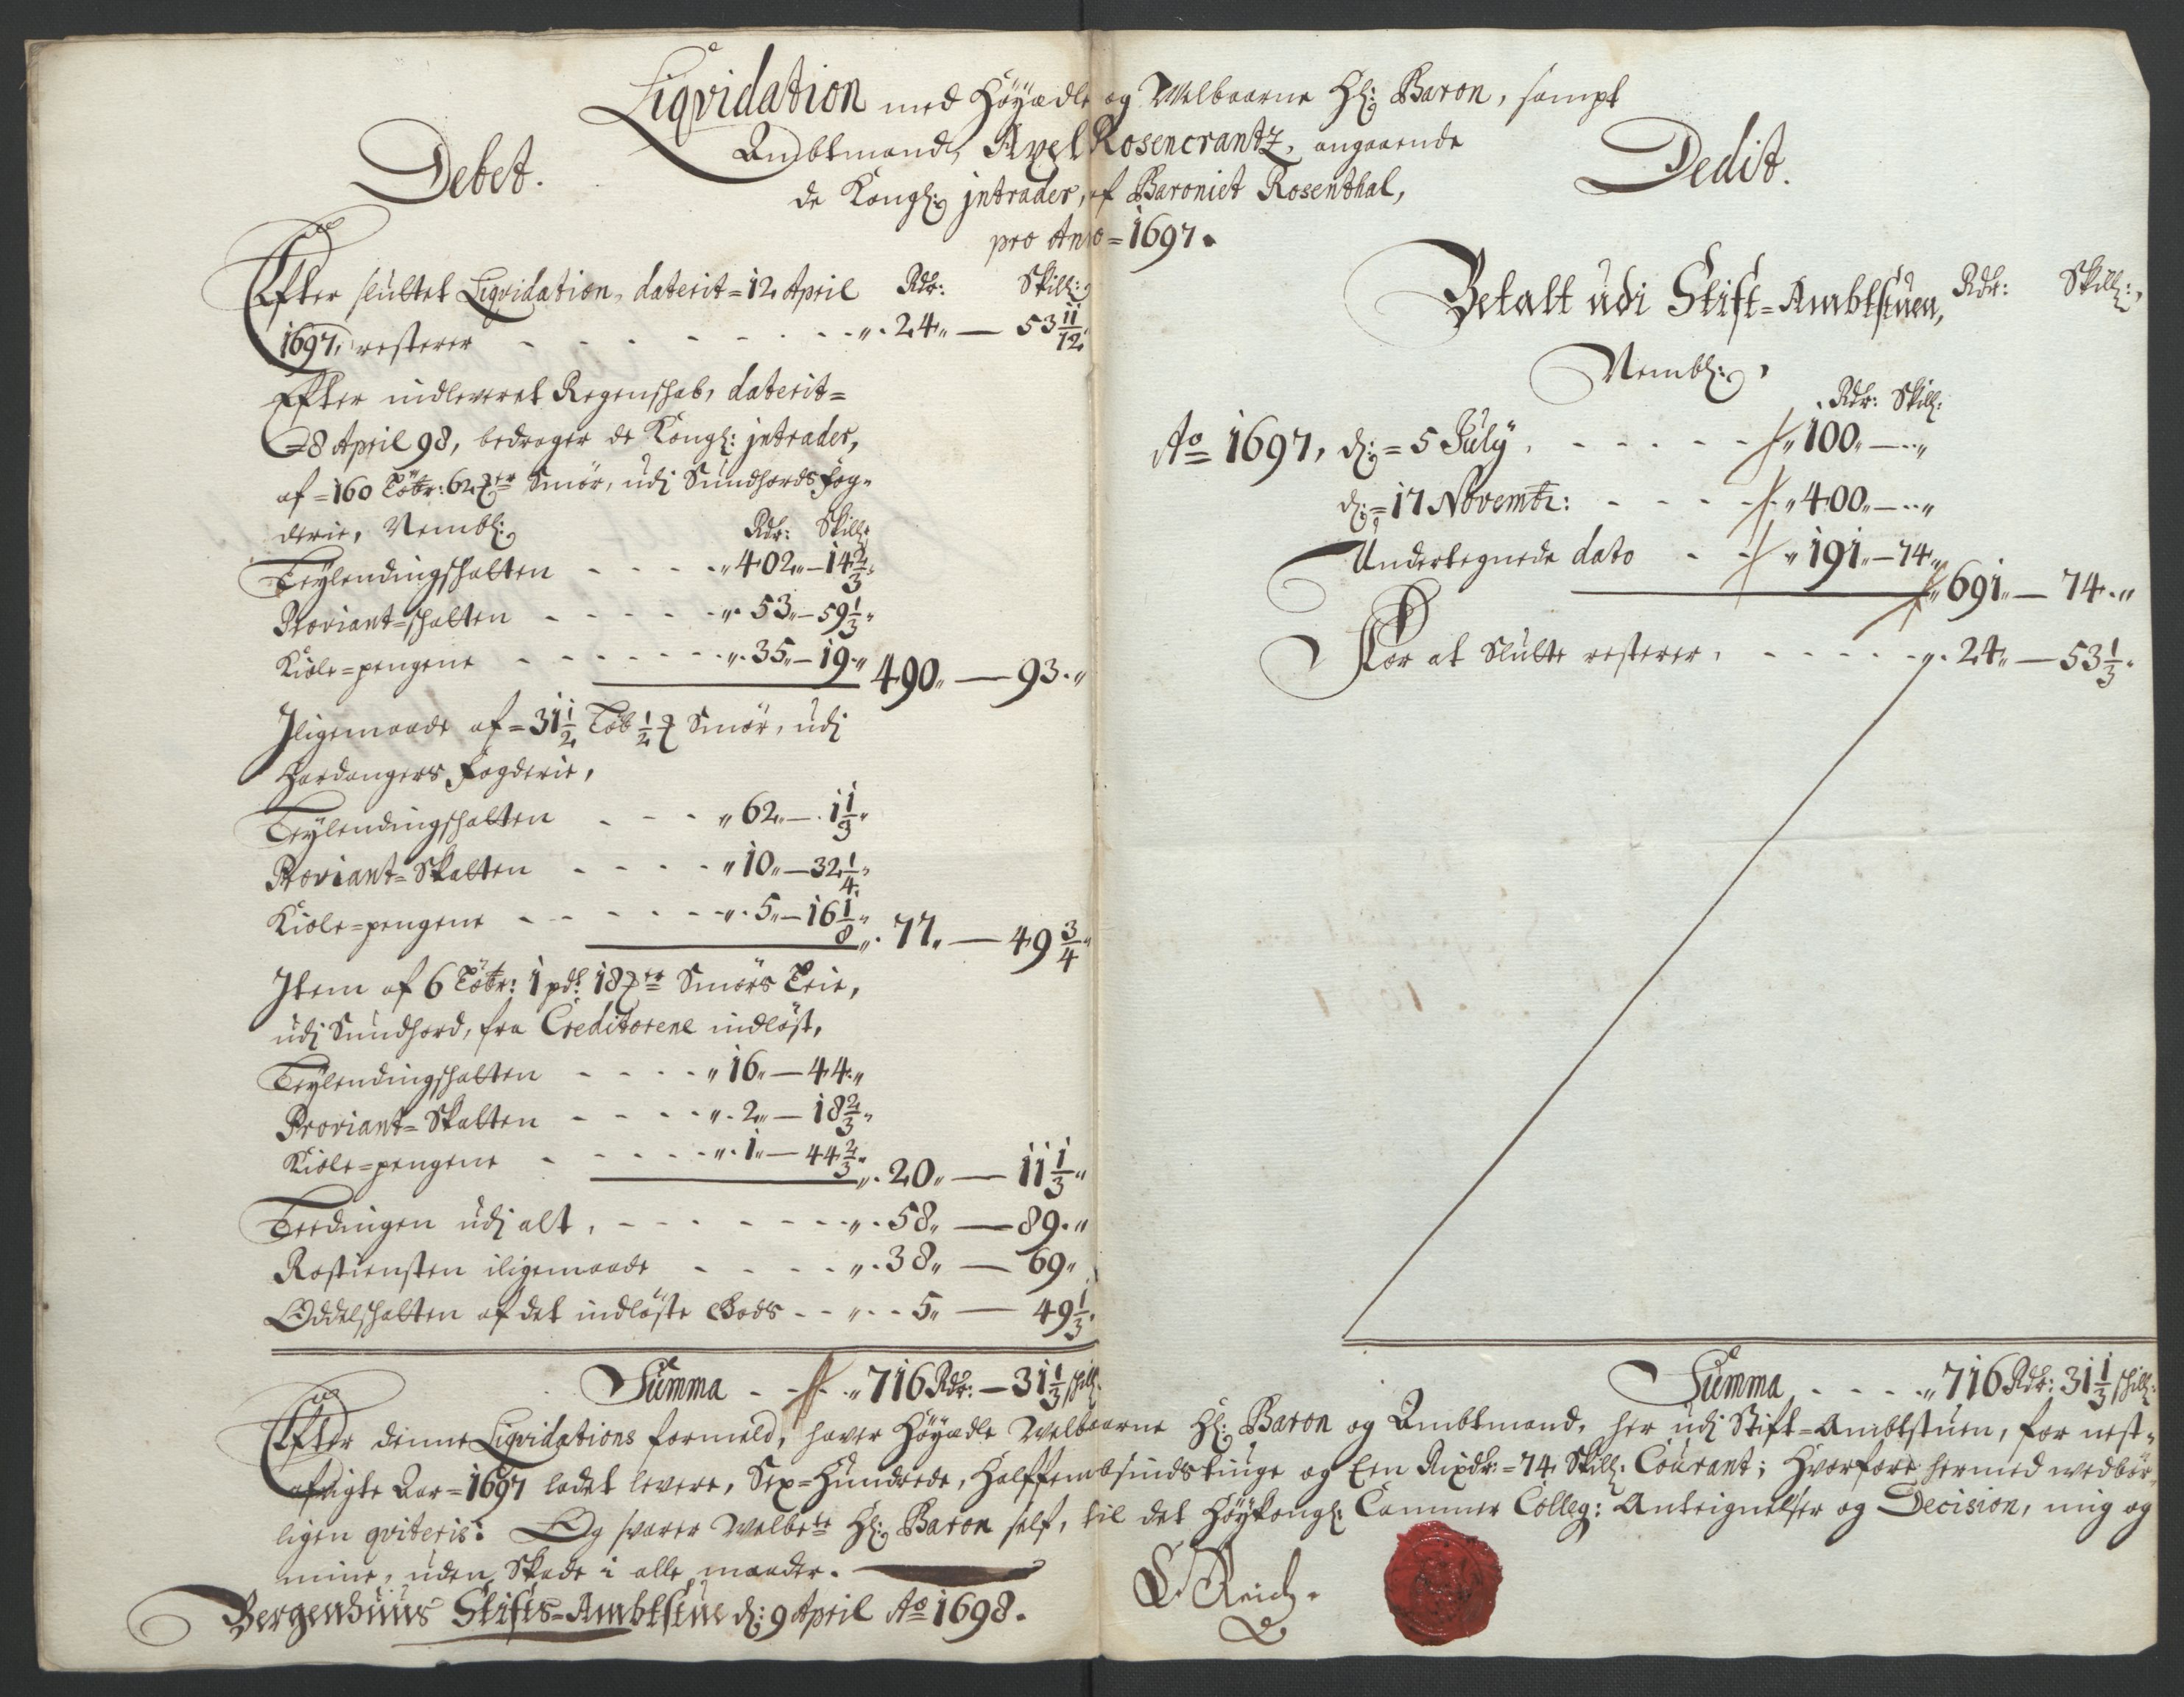 Liqvidation med Höyædle og Welbaarne Hr: Baron, sampt
Ambtmand, Axel Rosencrantz, angaaende
de Kongl: jntrader, af Baroniet Rosenthal,
pro Anno = 1697.
Debet.
Efter sluttet Liqvidation, daterit = 12 April Rdr: Skill:
1697, resterer - - - - - - - „. 24„ — 53 11/12
Efter indleveret Regenschab, daterit =
= 8 April 98, bedrager de Kongl: jntrader,
af = 160 Löbr: 62 Smör, udj Sundhords fog-
derie, Nembl: Rdr: Skill:
Leylendingschatten - - - - „402„ — 14 2/3„
Proviant-schatten - - - - - „. 53„ — 59 1/3„
Kiole=pengene - - - - - - „. 35„ — 19.„ 490„ — 93.„
Jligemaade af = 31 1/2 Löb 1/2 Smör, udj
Hardangers fogderie,
Leylendingschatten - - - „62„ — . 1 1/3„
Proviant=Skatten - - - - „10„ — 32 1/4„
Kiole=pengene - - - - - - „. 5„ — 16 1/8„ „. 77„ — 49 3/4„
Item af 6 Löbr: 1 pd: 18 Smörs Leie,
udj Sundhord, fra Creditorene indløst,
Leylendingschatten - - - - „16„ — 44.„
Proviant=Skatten - - - - „. 2„ — 18 2/3„
Kiole=pengene - - - - - „. 1„ — 44 2/3„ „. 20„ — 11 1/3„
Leedingen udj alt, - - - - - - - „. 58„ — 89.„
Rostiensten iligemaade - - - - „. 38„ — 69„
Oddelschatten af det indløste Gods - - „. - 5„ — 49 1/3„
Summa - - - „716 Rdr: — 31 1/3 skill:
Dedit.
Betalt udi Stift=Ambtstuen, Rdr: Skill:
Nembl:
Rdr: Skill:
Ao 1697, d: = 5 July, - - - - - „100„ — . . „
d: = 17 Novembr: - - - - „400„ — . . „
Undertegnede dato - - „191„ — 74„ „691„ — 74.„
For at slutte resterer, - - - - - „. 24„ — 53 1/3„
Summa - - - - „716 Rdr: 31 1/3 skill:
Efter denne Liqvidations formeld, haver Höyædle Welbaarne Hr: Baron og Ambtmand, her udj Stift=Ambtstuen, for nest-
afvigte Aar = 1697 ladet levere, Sex=Hundrede, Halffembsindstiuge og Een Rixdr: = 74 Skill: Courant; Hvorfore hermed wedbör-
ligen qviteris: Og svarer Welbete Hr: Baron self, til det Höykongl: Cammer Colleg: Anteignelser og Decision, mig og
mine, uden Skade i alle maader.
Bergenhuus Stifts=Ambtstue d: 9 April Ao 1698.